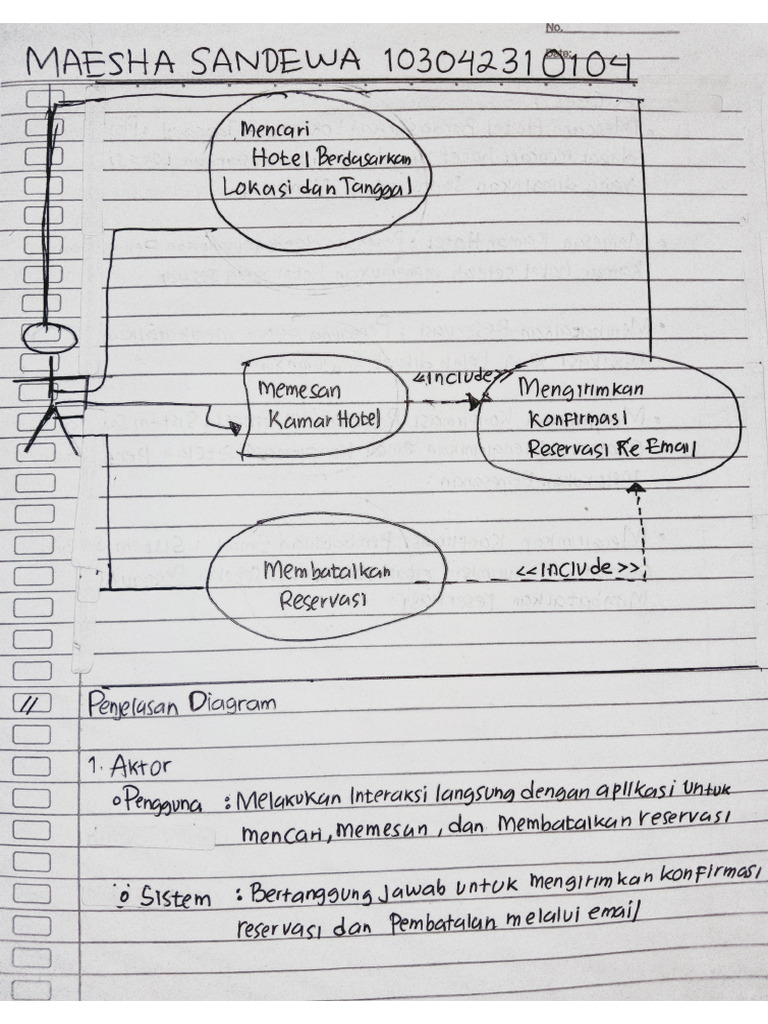 No.
Date:
MAESHA SANDEWA 103042310104
Mencari
Hotel Berdasarkan
Lokasi dan Tanggal
Memesan
Kamar Hotel
<<Include>>
Mengirimkan
Konfirmasi
Reservasi Ke Email
Membatalkan
Reservasi
<<Include>>
Penjelasan Diagram
1. Aktor
Pengguna : Melakukan Interaksi langsung dengan aplikasi untuk
mencari, memesan, dan Membatalkan reservasi
Sistem : Bertanggung Jawab untuk mengirimkan konfirmasi
reservasi dan Pembatalan melalui email